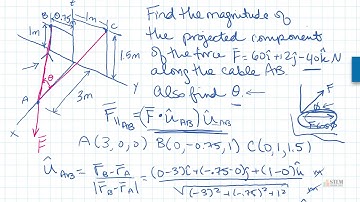 1m
B
0.75m
z
1m
C
1.5m
A
θ
3m
x
F̄
Find the magnitude of
the projected components
of the force F̄=60î+12ĵ-40k̂ N
along the cable AB.
Also find θ.
F̄
F̄∥AB = (F̄ • ûAB) ûAB
A (3,0,0) B(0,-0.75,1) C(0,1,1.5)
ûAB = r̄B-r̄A / |r̄B-r̄A| = (0-3)î+(-.75-0)ĵ+(1-0)k̂ / √(-3)²+(-.75)²+1²